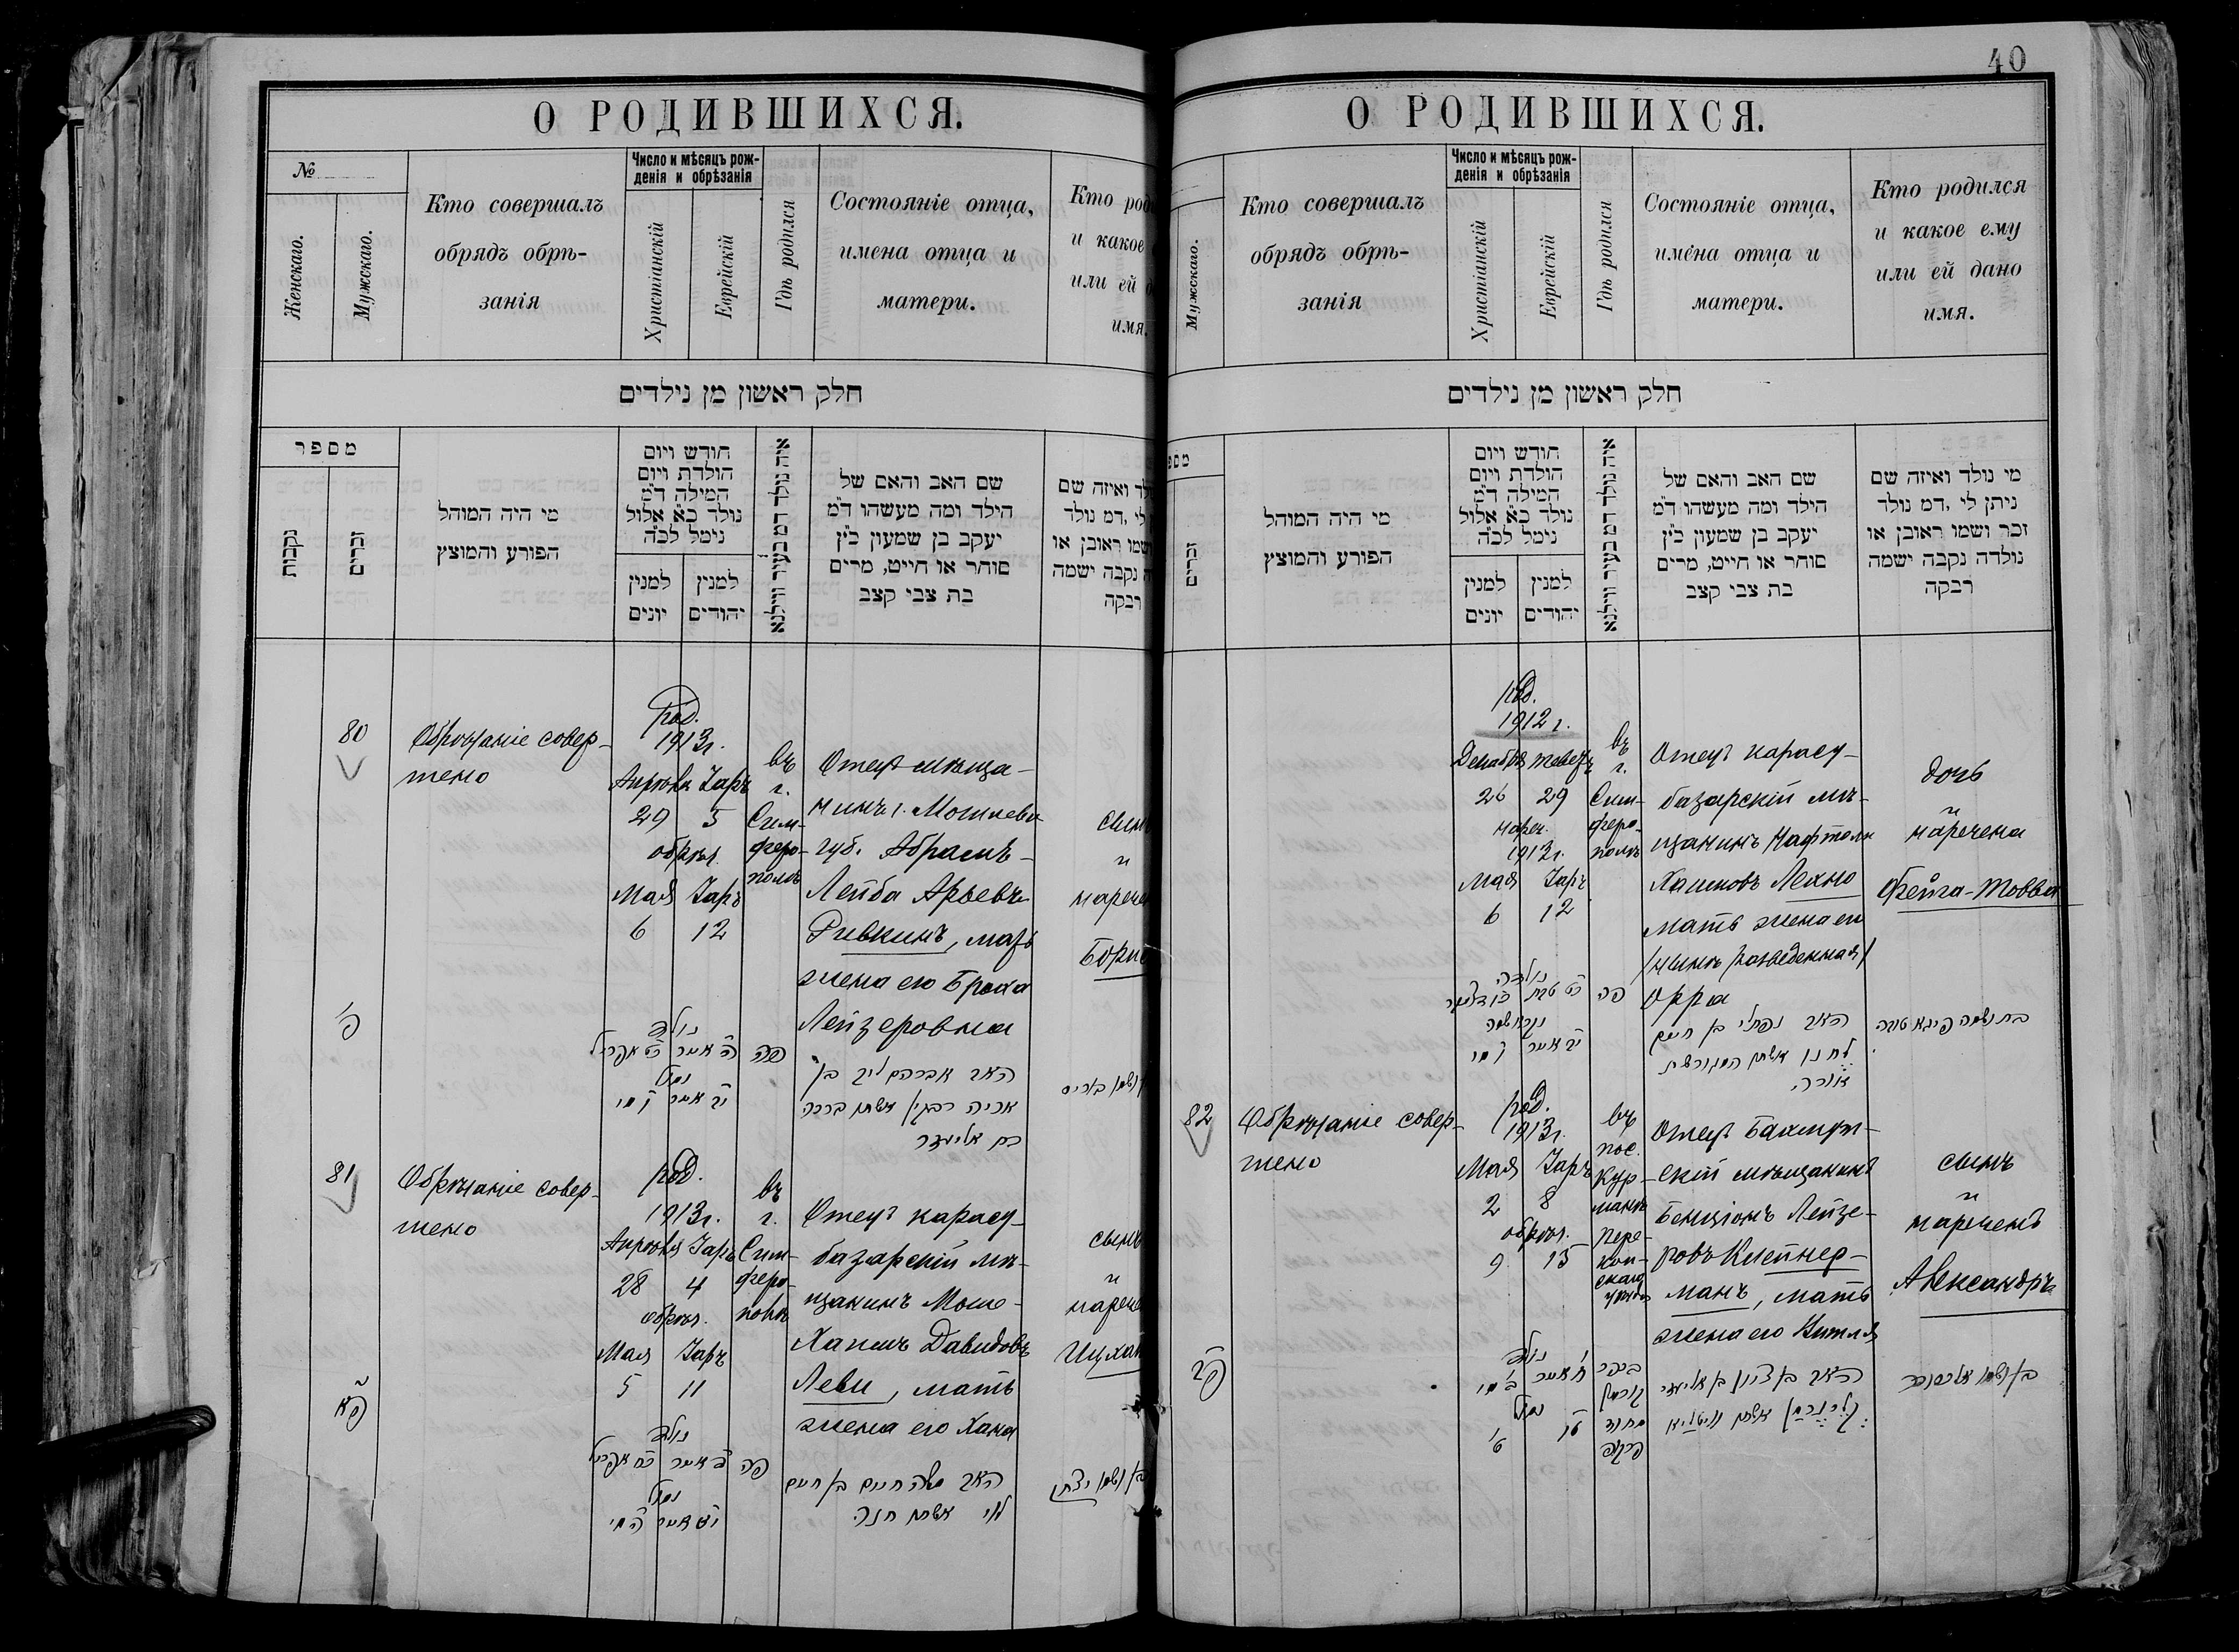 О РОДИВШИХСЯ.
№
Женскаго.
Мужскаго.
Кто совершалъ
обрядъ обрѣ-
занія
Число и мѣсяцъ рож-
денія и обрѣзанія
Христіанскій
Еврейскій
Гдѣ родился
Состояніе отца,
имена отца и
матери.
Кто род
и какое
или ей д
имя.
חלק ראשון מן נילדים
מספר
נקבות
זכרים
מי היה המוהל
הפורע והמוצץ
חודש ויום
הולדת ויום
המילה ד"מ
נולד כ"א אלול
נימל לכ"ה
למנין
יונים
למנין
יהודים
איה נולד דמ בעיר ווילנא
שם האב והאם של
הילד ומה מעשהו ד"מ
יעקב בן שמעון כ"ץ
סוחר או חייט, מרים
בת צבי קצב
לד ואיזה שם
לי ,דמ נולד
ושמו ראובן או
ה נקבה ישמה
רבקה
80
Обрѣзаніе совер-
шено
род.
1913 г.
Апрѣля Іаръ
29 5
обрѣз.
Мая Іаръ
6 12
въ
г.
Сим-
феро-
полѣ
Отецъ мѣща-
нинъ г. Могилева
губ. Абрамъ-
Лейба Арьевъ
Ривкинъ, мать
жена его Браха
Лейзеровна
сынъ
и
нарече
Борис
פ'
נולד
ה' אייר כ"ט אפריל
נימול
י"ב אייר 6 מאי
פה
האב אברהם ליב בן
אריה ריבקין אשתו ברכה
בת אליעזר
ושמו באריס
81
Обрѣзаніе совер-
шено
род.
1913 г.
Апрѣля Іаръ
28 4
обрѣз.
Мая Іаръ
5 11
въ
г.
Сим-
феро-
полѣ
Отецъ карасу-
базарскій мѣ-
щанинъ Моше-
Хаимъ Давидовъ
Леви, мать
жена его Хана
сынъ
и
нарече
Ицхак
פ"א
נולד
ד' אייר כ"ח אפריל
נימול
י"א אייר 5 מאי
פה
האב משה חיים בן חיים
לוי אשתו חנה
בן ושמו יצחק
40
О РОДИВШИХСЯ.
Мужскаго.
Кто совершалъ
обрядъ обрѣ-
занія
Число и мѣсяцъ рож-
денія и обрѣзанія
Христіанскій
Еврейскій
Гдѣ родился
Состояніе отца,
имена отца и
матери.
Кто родился
и какое ему
или ей дано
имя.
חלק ראשון מן נילדים
מספ
זכרים
מי היה המוהל
הפורע והמוצץ
חודש ויום
הולדת ויום
המילה ד"מ
נולד כ"א אלול
נימל לכ"ה
למנין
יונים
למנין
יהודים
איה נולד דמ בעיר ווילנא
שם האב והאם של
הילד ומה מעשהו ד"מ
יעקב בן שמעון כ"ץ
סוחר או חייט, מרים
בת צבי קצב
מי נולד ואיזה שם
ניתן לי ,דמ נולד
זכר ושמו ראובן או
נולדה נקבה ישמה
רבקה
род.
1912 г.
Декабря Теветъ
26 29
нареч.
1913 г.
Мая Іаръ
6 12
въ
г.
Сим-
феро-
полѣ
Отецъ карасу-
базарскій мѣ-
щанинъ Нафтоли
Хаимовъ Лехно
мать жена его
(нынѣ разведенная)
Орра
дочь
и
наречена
Фейга-Товва
נולדה
כ"ט טבת
י"ב אייר 6 מאי
פה
האב נפתלי בן חיים
לחנו אשתו המגורשת
אורה
בת ושמה פיגא טובה
82
Обрѣзаніе совер-
шено
род.
1913 г.
Мая Іаръ
2 8
обрѣз.
9 15
въ
пос.
Кур-
манъ
Пере-
коп-
скаго
уѣзда
Отецъ Бахмут-
скій мѣщанинъ
Бенціонъ Лейзе-
ровъ Клейнер-
манъ, мать
жена его Витля
сынъ
и
нареченъ
Александръ
פ"ב
נולד
ח' אייר 2 מאי
נימול
ט"ו 9
בכפר
קורמן
מחוז
פרקופ
האב בן ציון בן אליעזר
קליינרמן אשתו וויטליא
בן ושמו אלכסנדר